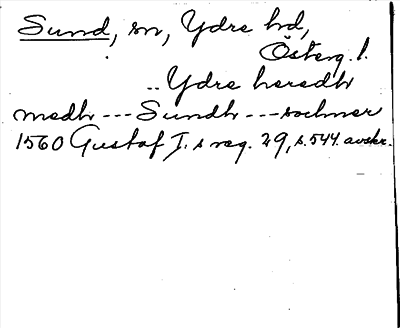 Sund, sn, Ydre hd,
Österg. l.
.. Ydre heredh
medh --- Sundh --- sochner
1560 Gustaf I. s reg. 29, s. 544. avskr.